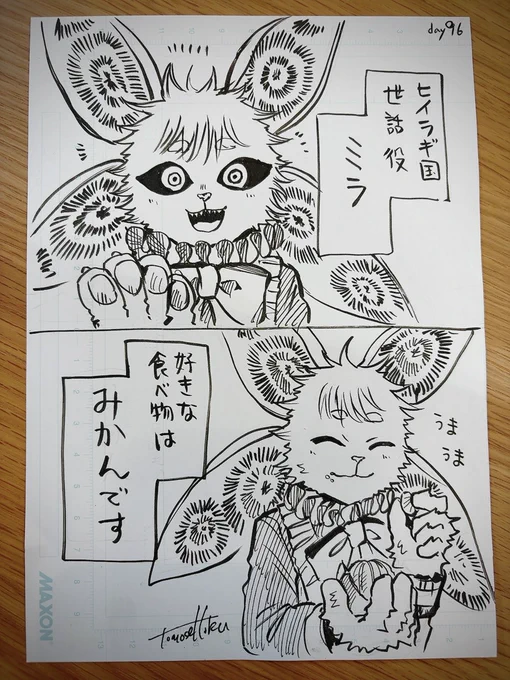 day96
ヒイラギ国
世話役
ミラ
好きな
食べ物は
みかんです
うま
うま
MAXON